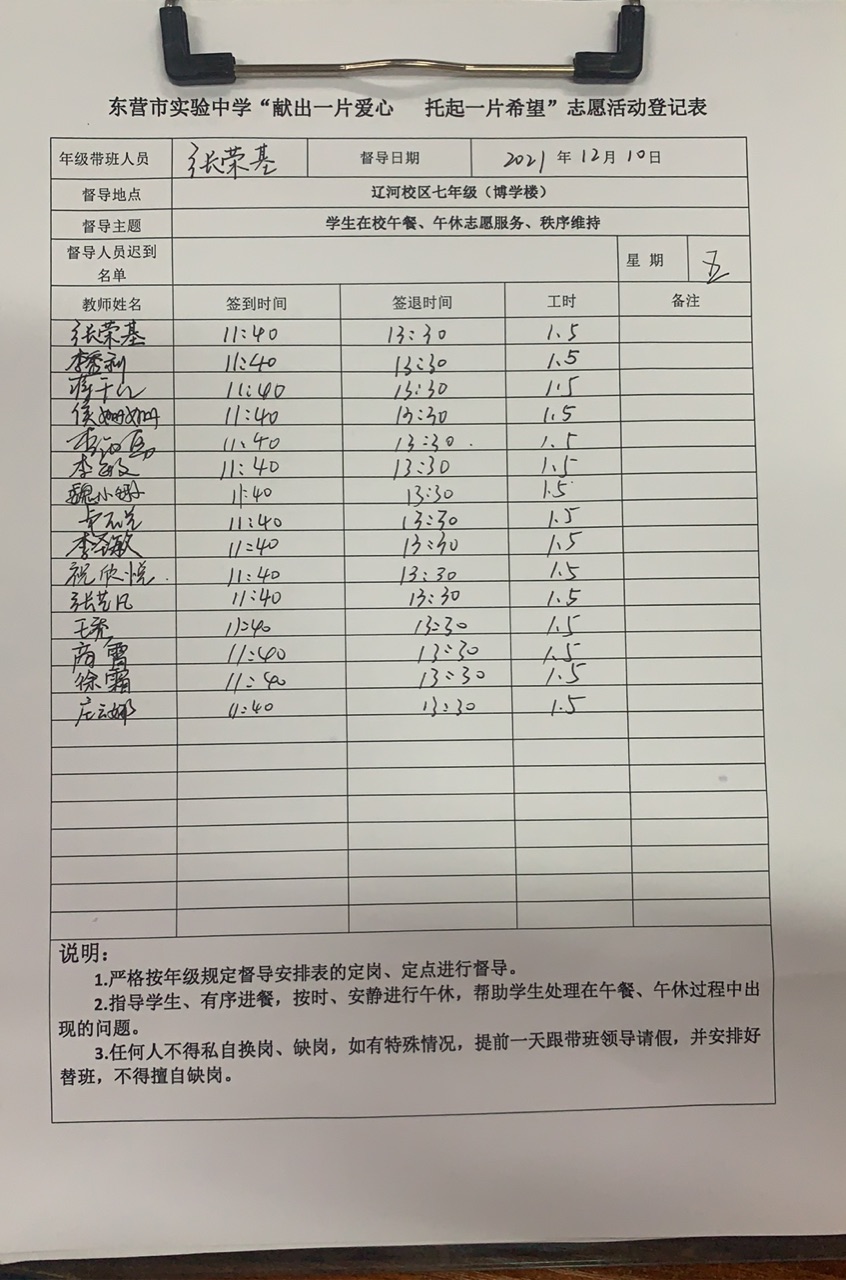 东营市实验中学“献出一片爱心 托起一片希望”志愿活动登记表
年级带班人员 张荣基 督导日期 2021年12月10日
督导地点 辽河校区七年级（博学楼）
督导主题 学生在校午餐、午休志愿服务、秩序维持
督导人员迟到名单 星期 五
教师姓名 签到时间 签退时间 工时 备注
张荣基 11:40 13:30 1.5
李秀利 11:40 13:30 1.5
11:40 13:30 1.5
侯姗姗 11:40 13:30 1.5
11:40 13:30 1.5
李敏 11:40 13:30 1.5
魏小娜 11:40 13:30 1.5
11:40 13:30 1.5
李圣敏 11:40 13:30 1.5
祝欣悦 11:40 13:30 1.5
张艺凡 11:40 13:30 1.5
王亮 11:40 13:30 1.5
商雪 11:40 13:30 1.5
徐霜 11:40 13:30 1.5
庄云娜 11:40 13:30 1.5
说明：
1.严格按年级规定督导安排表的定岗、定点进行督导。
2.指导学生、有序进餐，按时、安静进行午休，帮助学生处理在午餐、午休过程中出
现的问题。
3.任何人不得私自换岗、缺岗，如有特殊情况，提前一天跟带班领导请假，并安排好
替班，不得擅自缺岗。